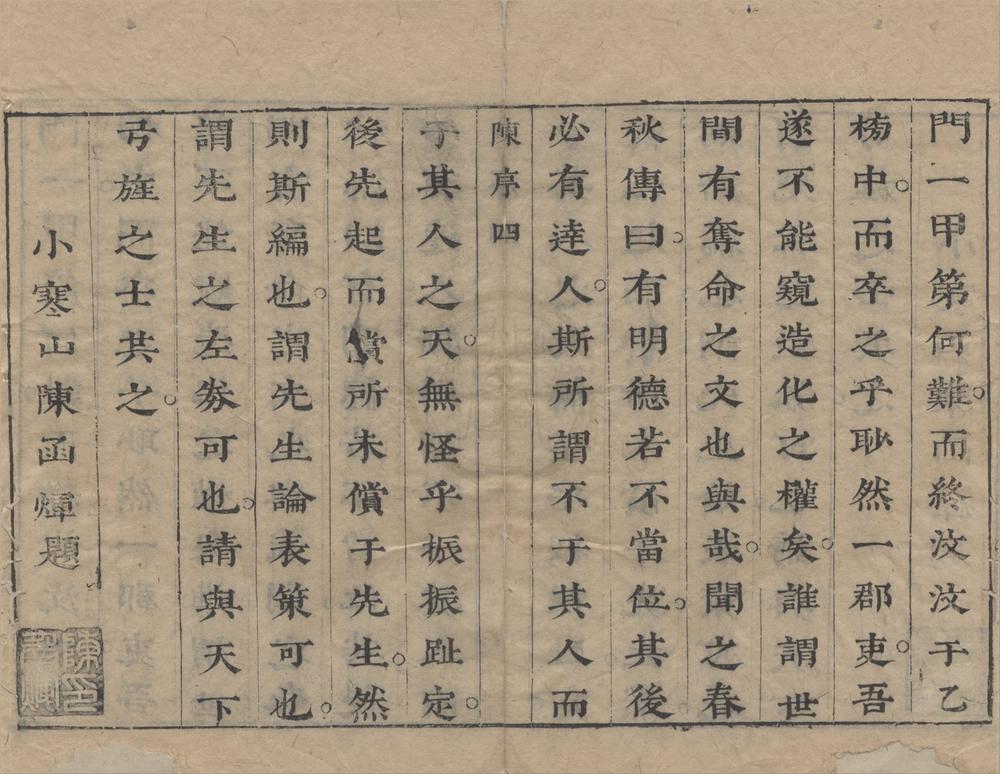 門一甲第何難而終汶汶于乙
榜中而卒之乎耿然一郡吏吾
遂不能窺造化之權矣誰謂世
間有奪命之文也與哉聞之春
秋傳曰有明德若不當位其後
必有達人斯所謂不于其人而
陳序四
于其人之天無怪乎振振趾定
後先起而償所未償于先生然
則斯編也謂先生論表策可也
謂先生之左券可也請與天下
弓旌之士共之
小寒山陳函煇題